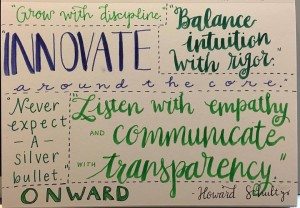 "Grow with discipline.
Balance
intuition
with rigor.
INNOVATE
around the core.
Never
expect
- A -
silver
bullet.
Listen with empathy
AND communicate
WITH transparency."
ONWARD
Howard Schultz